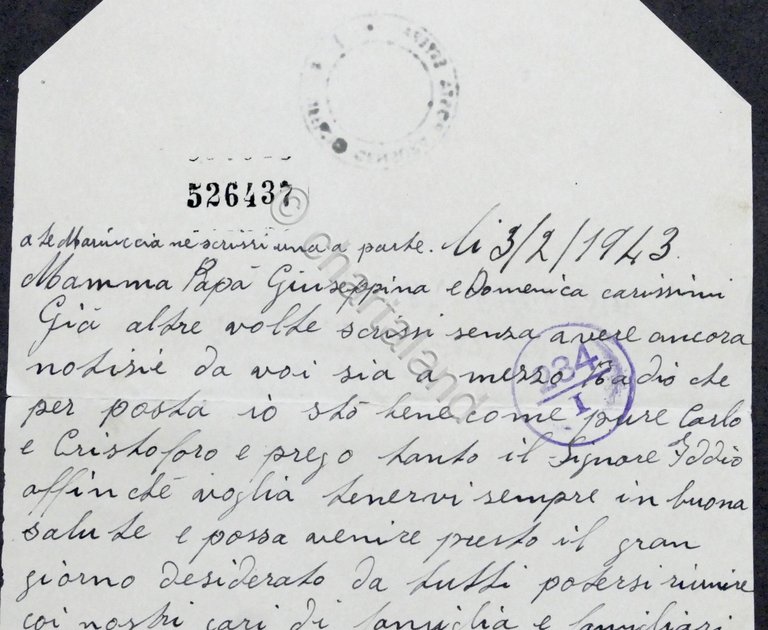 526437
a te Mariuccia ne scrissi una a parte. li 3/2/1943.
Mamma Papà Giuseppina e Domenica carissimi
Già altre volte scrissi senza avere ancora
notizie da voi sia a mezzo Radio che
per posta io stò bene come pure Carlo
e Cristoforo e prego tanto il Signore Iddio
affinchè voglia tenervi sempre in buona
salute e possa venire presto il gran
giorno desiderato da tutti potersi riunire
coi nostri cari di famiglia e famigliari
234
I
© chartaland